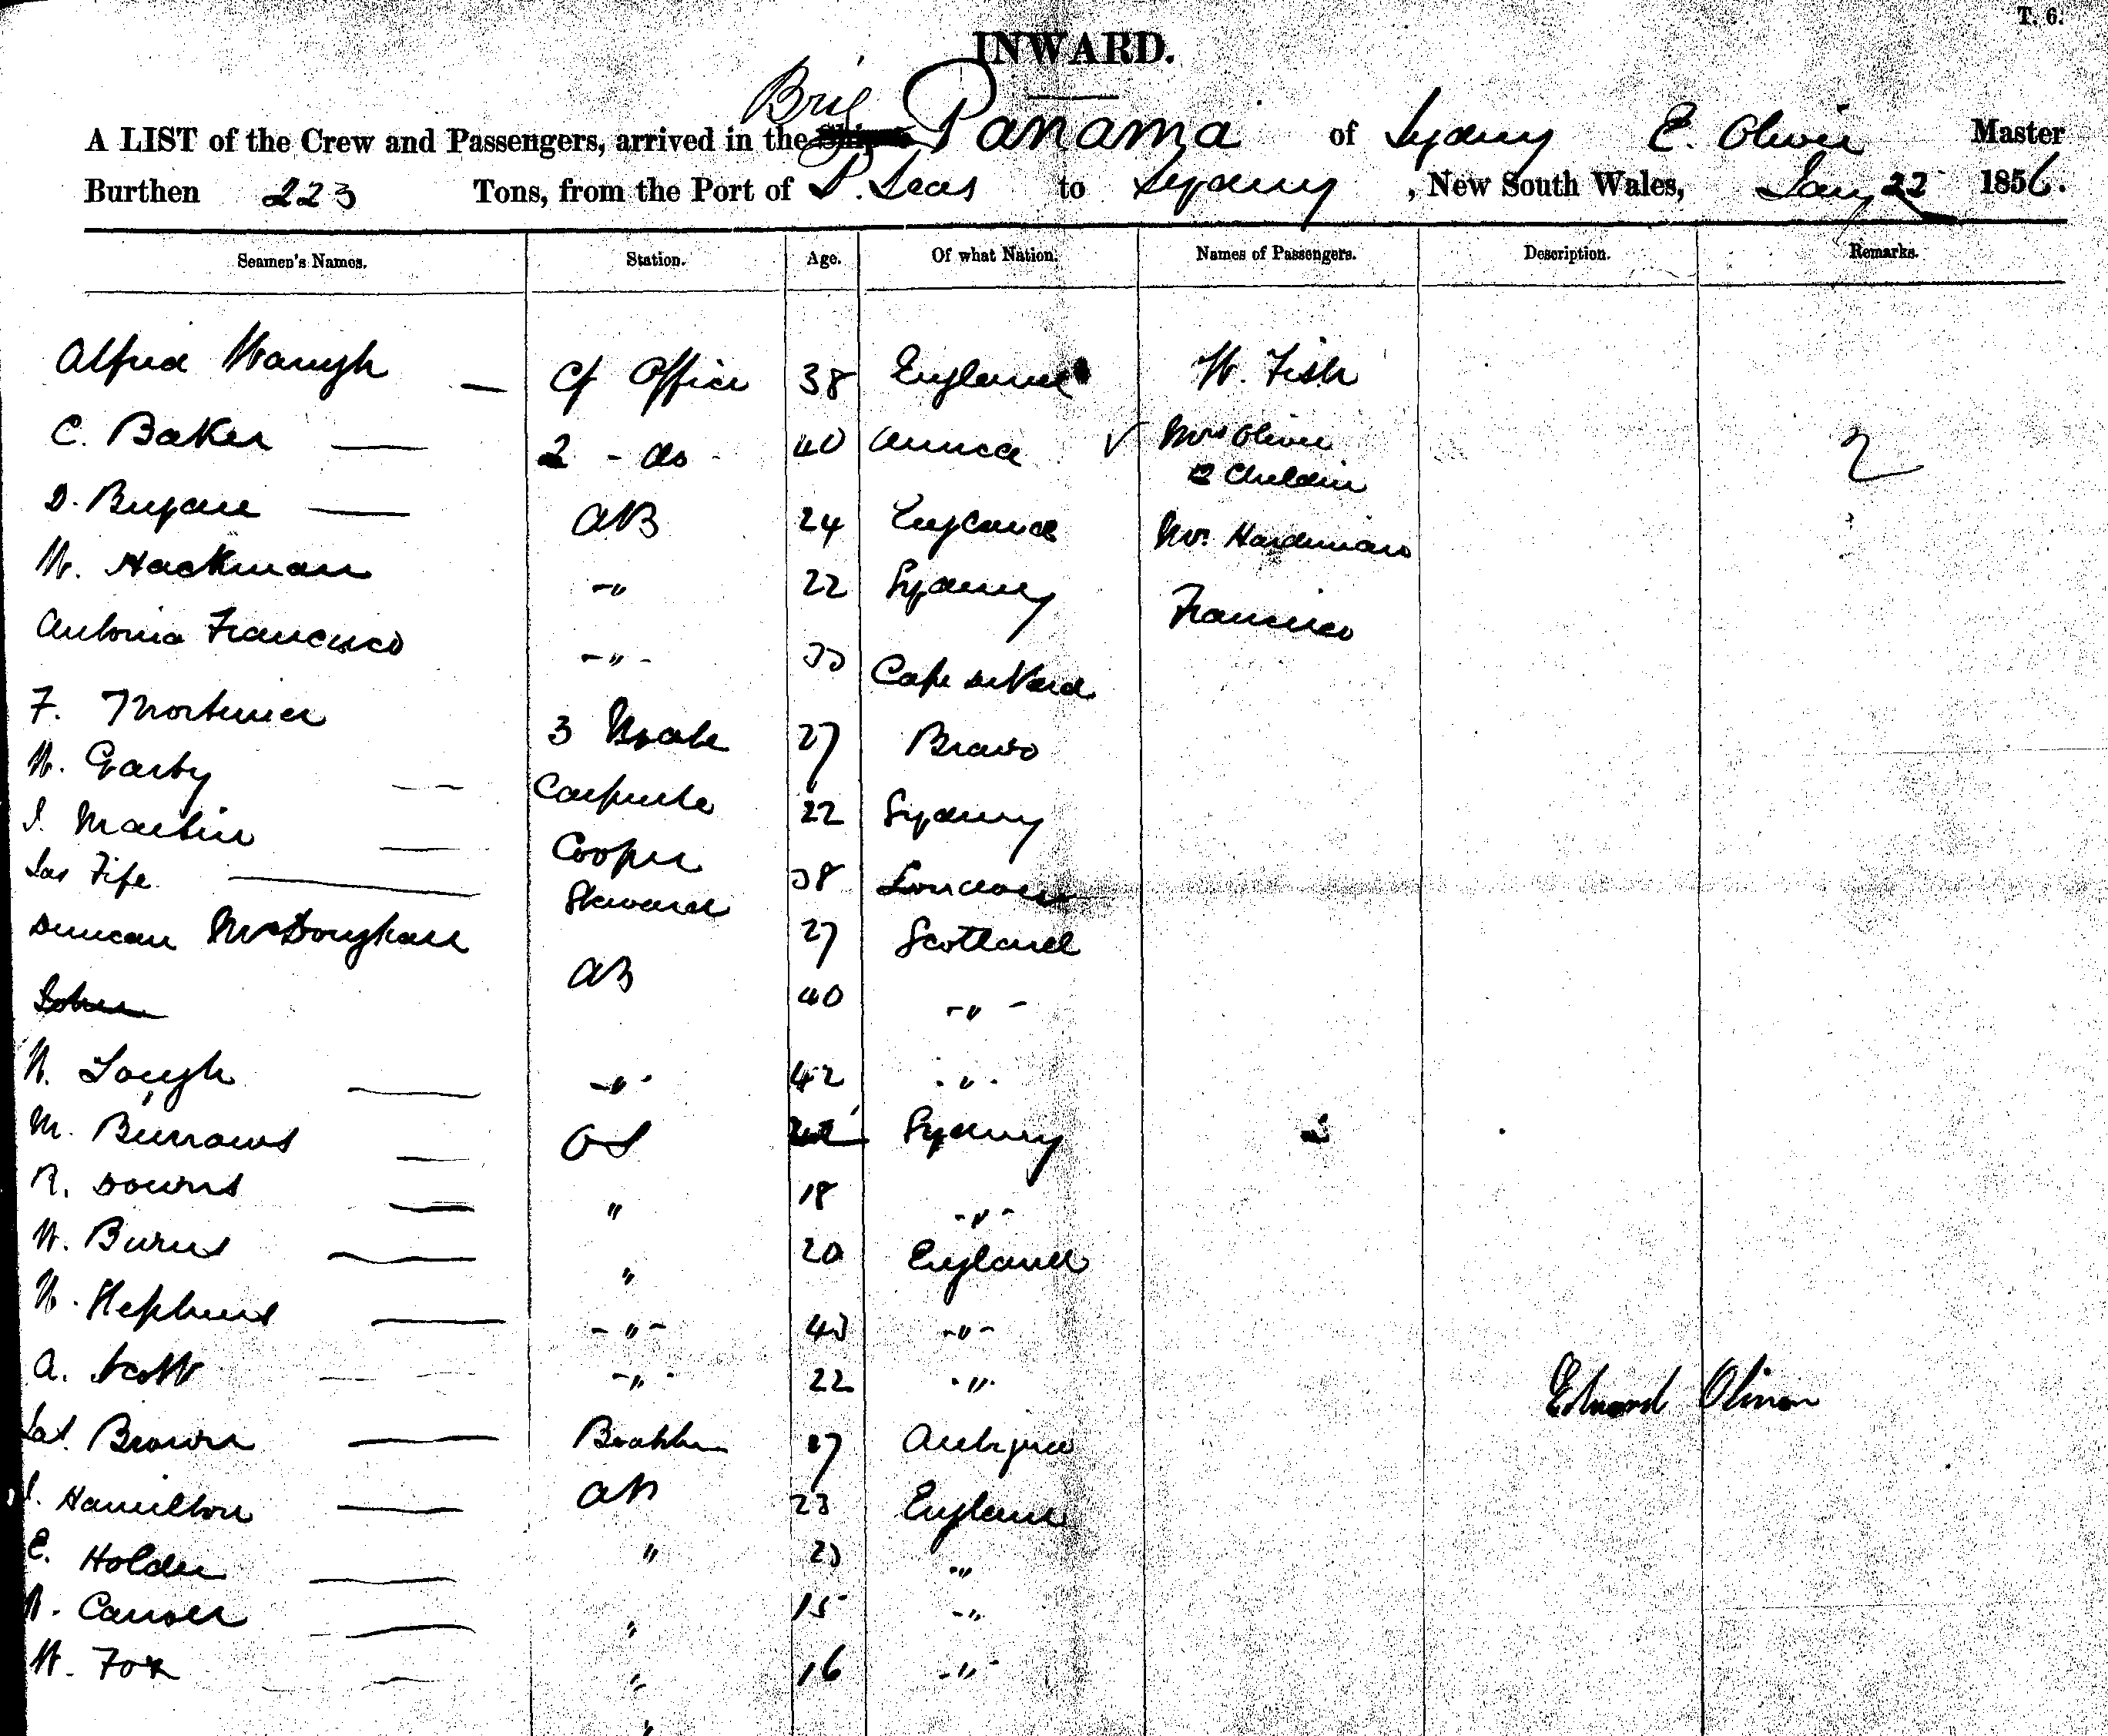 T. 6.
INWARD.
Brig
A LIST of the Crew and Passengers, arrived in the Panama of Sydney E. Oliver Master
Burthen 223 Tons, from the Port of S. Seas to Sydney, New South Wales, Jany 22 1856.
Seamen's Names. Station. Age. Of what Nation. Names of Passengers. Description. Remarks.
Alfred Waugh — Cf Officer 38 England W. Fish
C. Baker — 2 - do - 40 America ✓ Mrs Oliver 2
2 Children
D. — AB 24 England Mr. Hardiman
W. Hackman -"- 22 Sydney Francisco
Antonio Francisco -"- 33 Cape de Verd
F. Mortimer 3 Mate 27 Bravo
W. Garby — Carpenter 22 Sydney
J. Martin — Cooper 38 London
Jas Fife — Steward 27 Scotland
Duncan McDoughall AB 40 -"-
John
W. Lough — -"- 42 -"-
M. Burrows — OS Sydney
R. Downs — " 18 -"-
W. Burns — " 20 England
W. Stephens — -"- 43 -"-
A. Scott — -"- 22 -"-
Edward Oliver
Jas. Brown — 27 Antigua
J. Hamilton — AB 23 England
E. Holder — " 23 -"-
W. — " 15 -"-
W. Fox — " 16 -"-
"